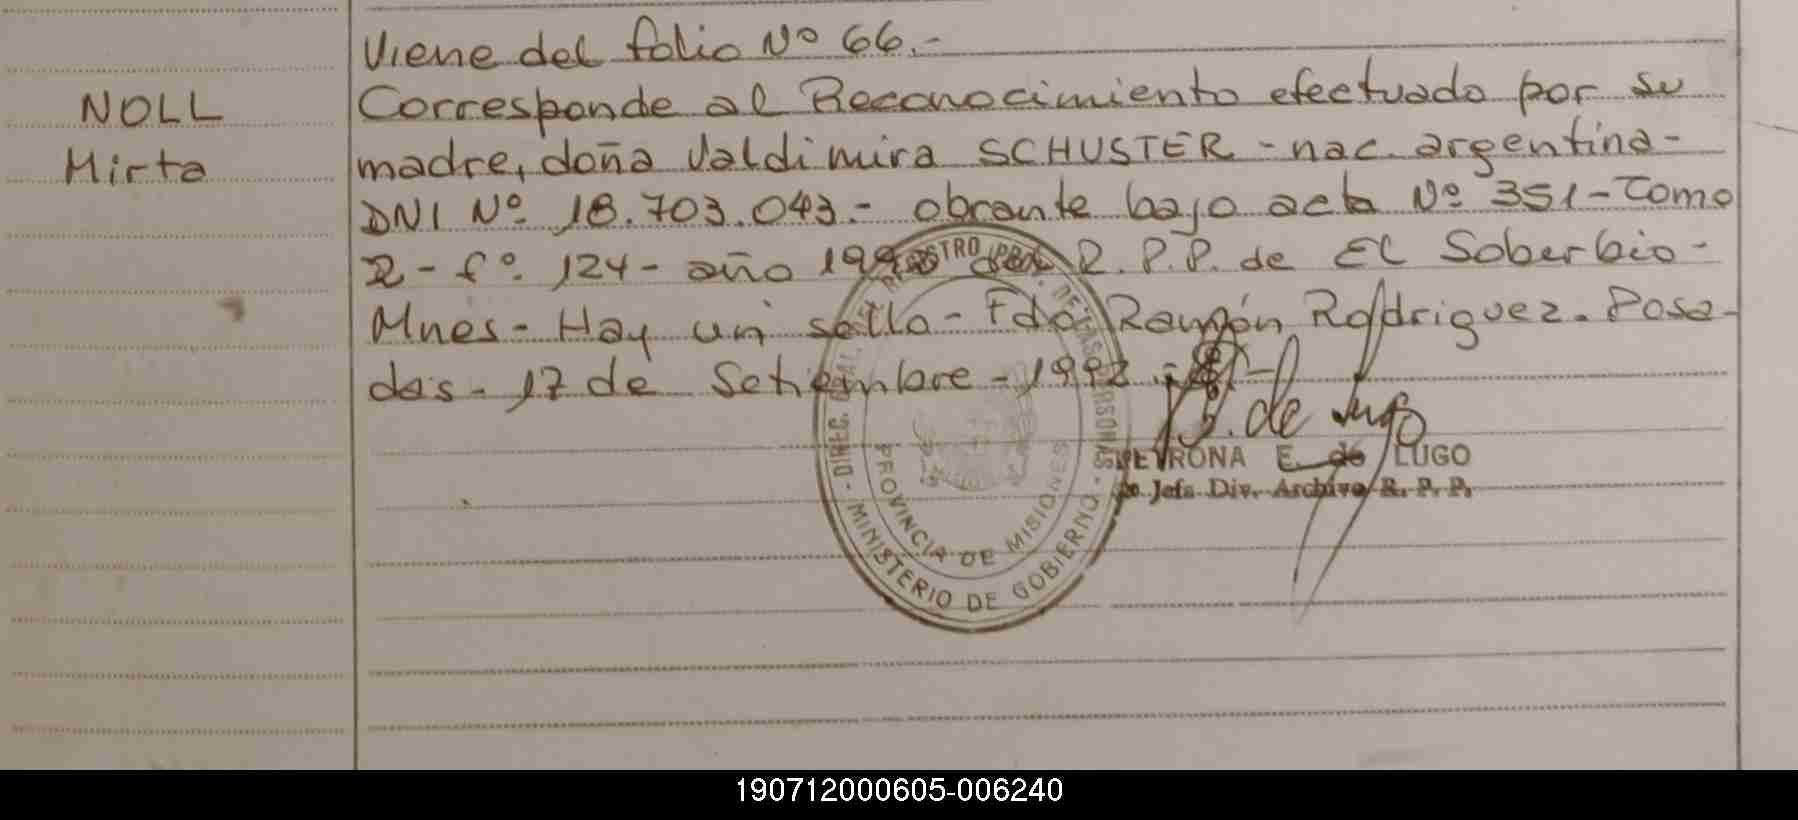 Viene del folio Nº 66.-
NOLL
Mirta
Corresponde al Reconocimiento efectuado por su
madre, doña Valdimira SCHUSTER - nac. argentina -
DNI Nº 18.703.043.- obrante bajo acta Nº 351 - Tomo
2 - fº 124 - año R.P.P. de El Soberbio -
Mnes - Hay un sello - Fdo Ramón Rodriguez. Posa-
das - 17 de Setiembre - 1992.-
J. de Lugo
PETRONA E. de LUGO
Jefa Div. Archivo R. P. P.
PROVINCIA DE MISIONES
MINISTERIO DE GOBIERNO
190712000605-006240